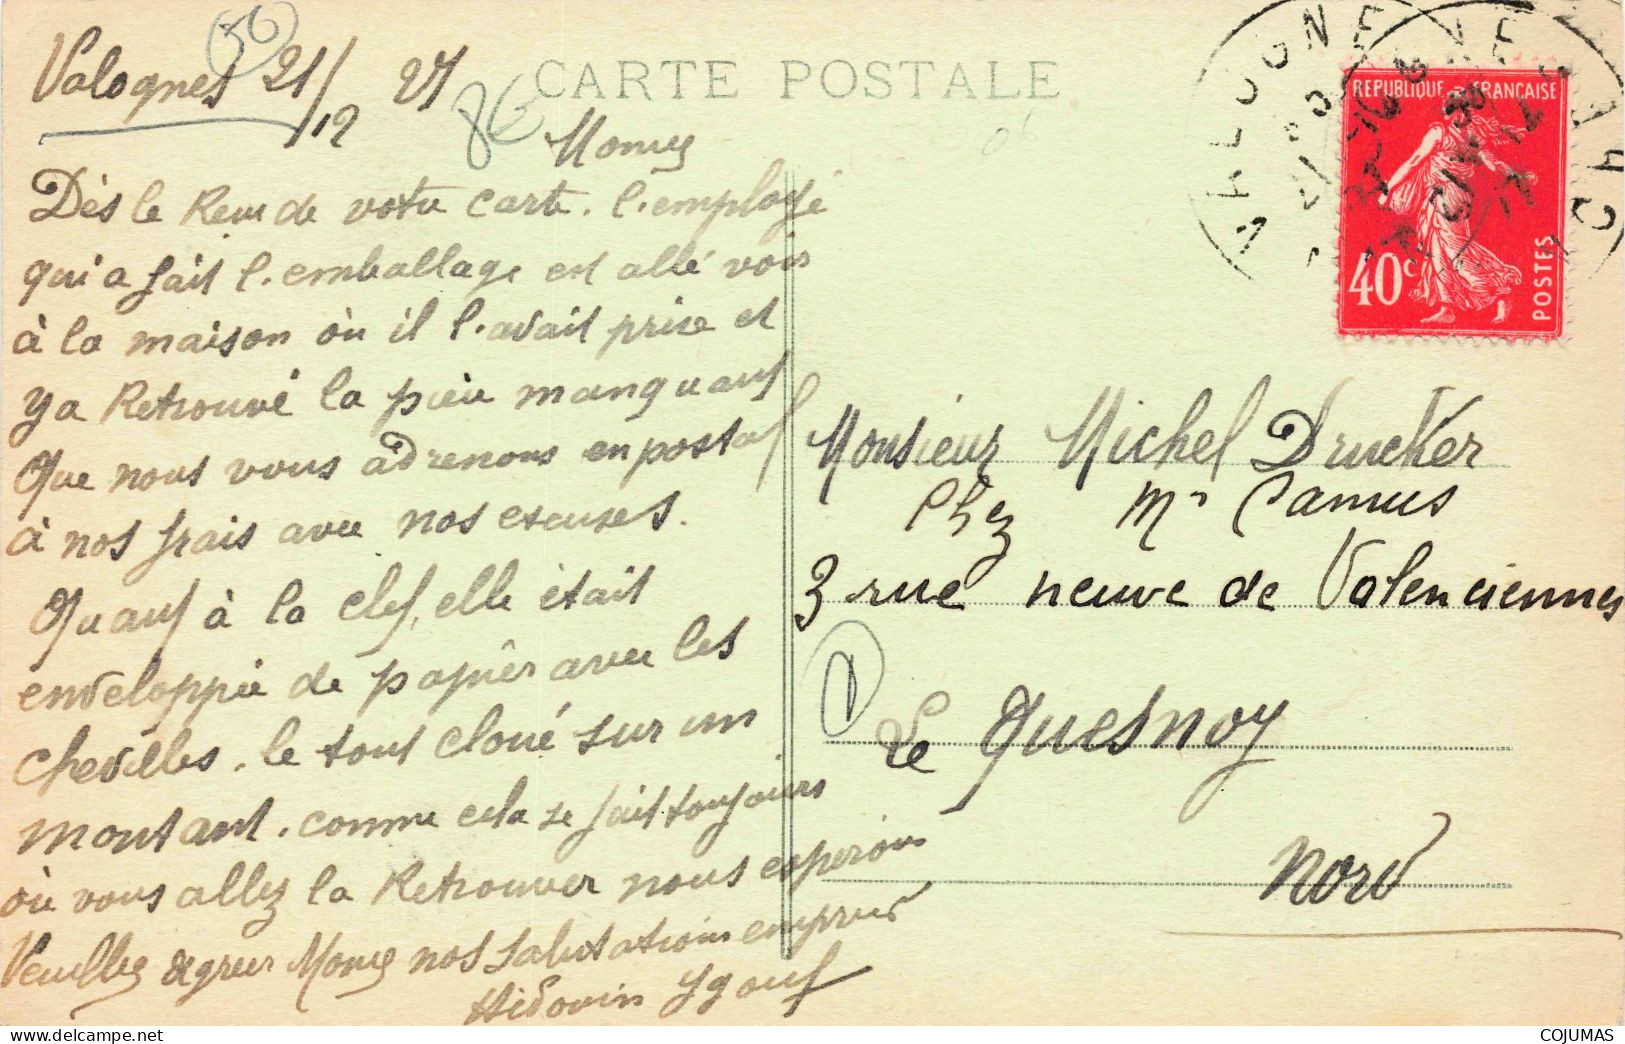 Valognes 21/12 27
50
8€
CARTE POSTALE
06
Dès le Recu de votre carte. l'employé
qui a fait l'emballage est allé voir
à la maison où il l'avait prise et
y a Retrouvé la pièce manquant
Que nous vous adressons en postal
à nos frais avec nos excuses.
Quant à la clef, elle était
enveloppée de papier avec les
chevilles. le tout cloué sur un
montant. comme cela se fait toujours
où vous allez la Retrouver nous esperons
Veuillez agréer nos salutations
Hédouin Ygouf
VALOGNES
REPUBLIQUE FRANÇAISE
40c
POSTES
Monsieur Michel Drucker
Chez Mr Camus
3 rue neuve de Valenciennes
Le Quesnoy
Nord
COJUMAS